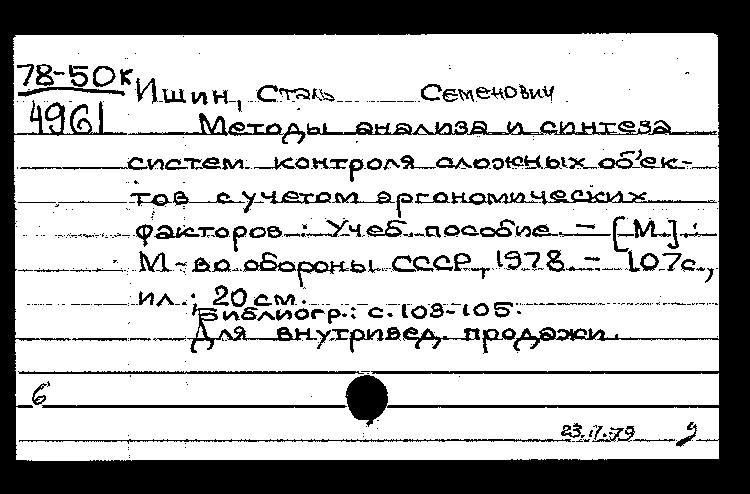 78-50к
4961
Ишин, Сталь Семенович
Методы анализа и синтеза
систем контроля сложных объек-
тов с учетом эргономических
факторов : Учеб. пособие. – [М.] :
М-во обороны СССР, 1978. – 107с.,
ил.; 20 см.
Библиогр.: с. 103-105.
Для внутривед. продажи.
6